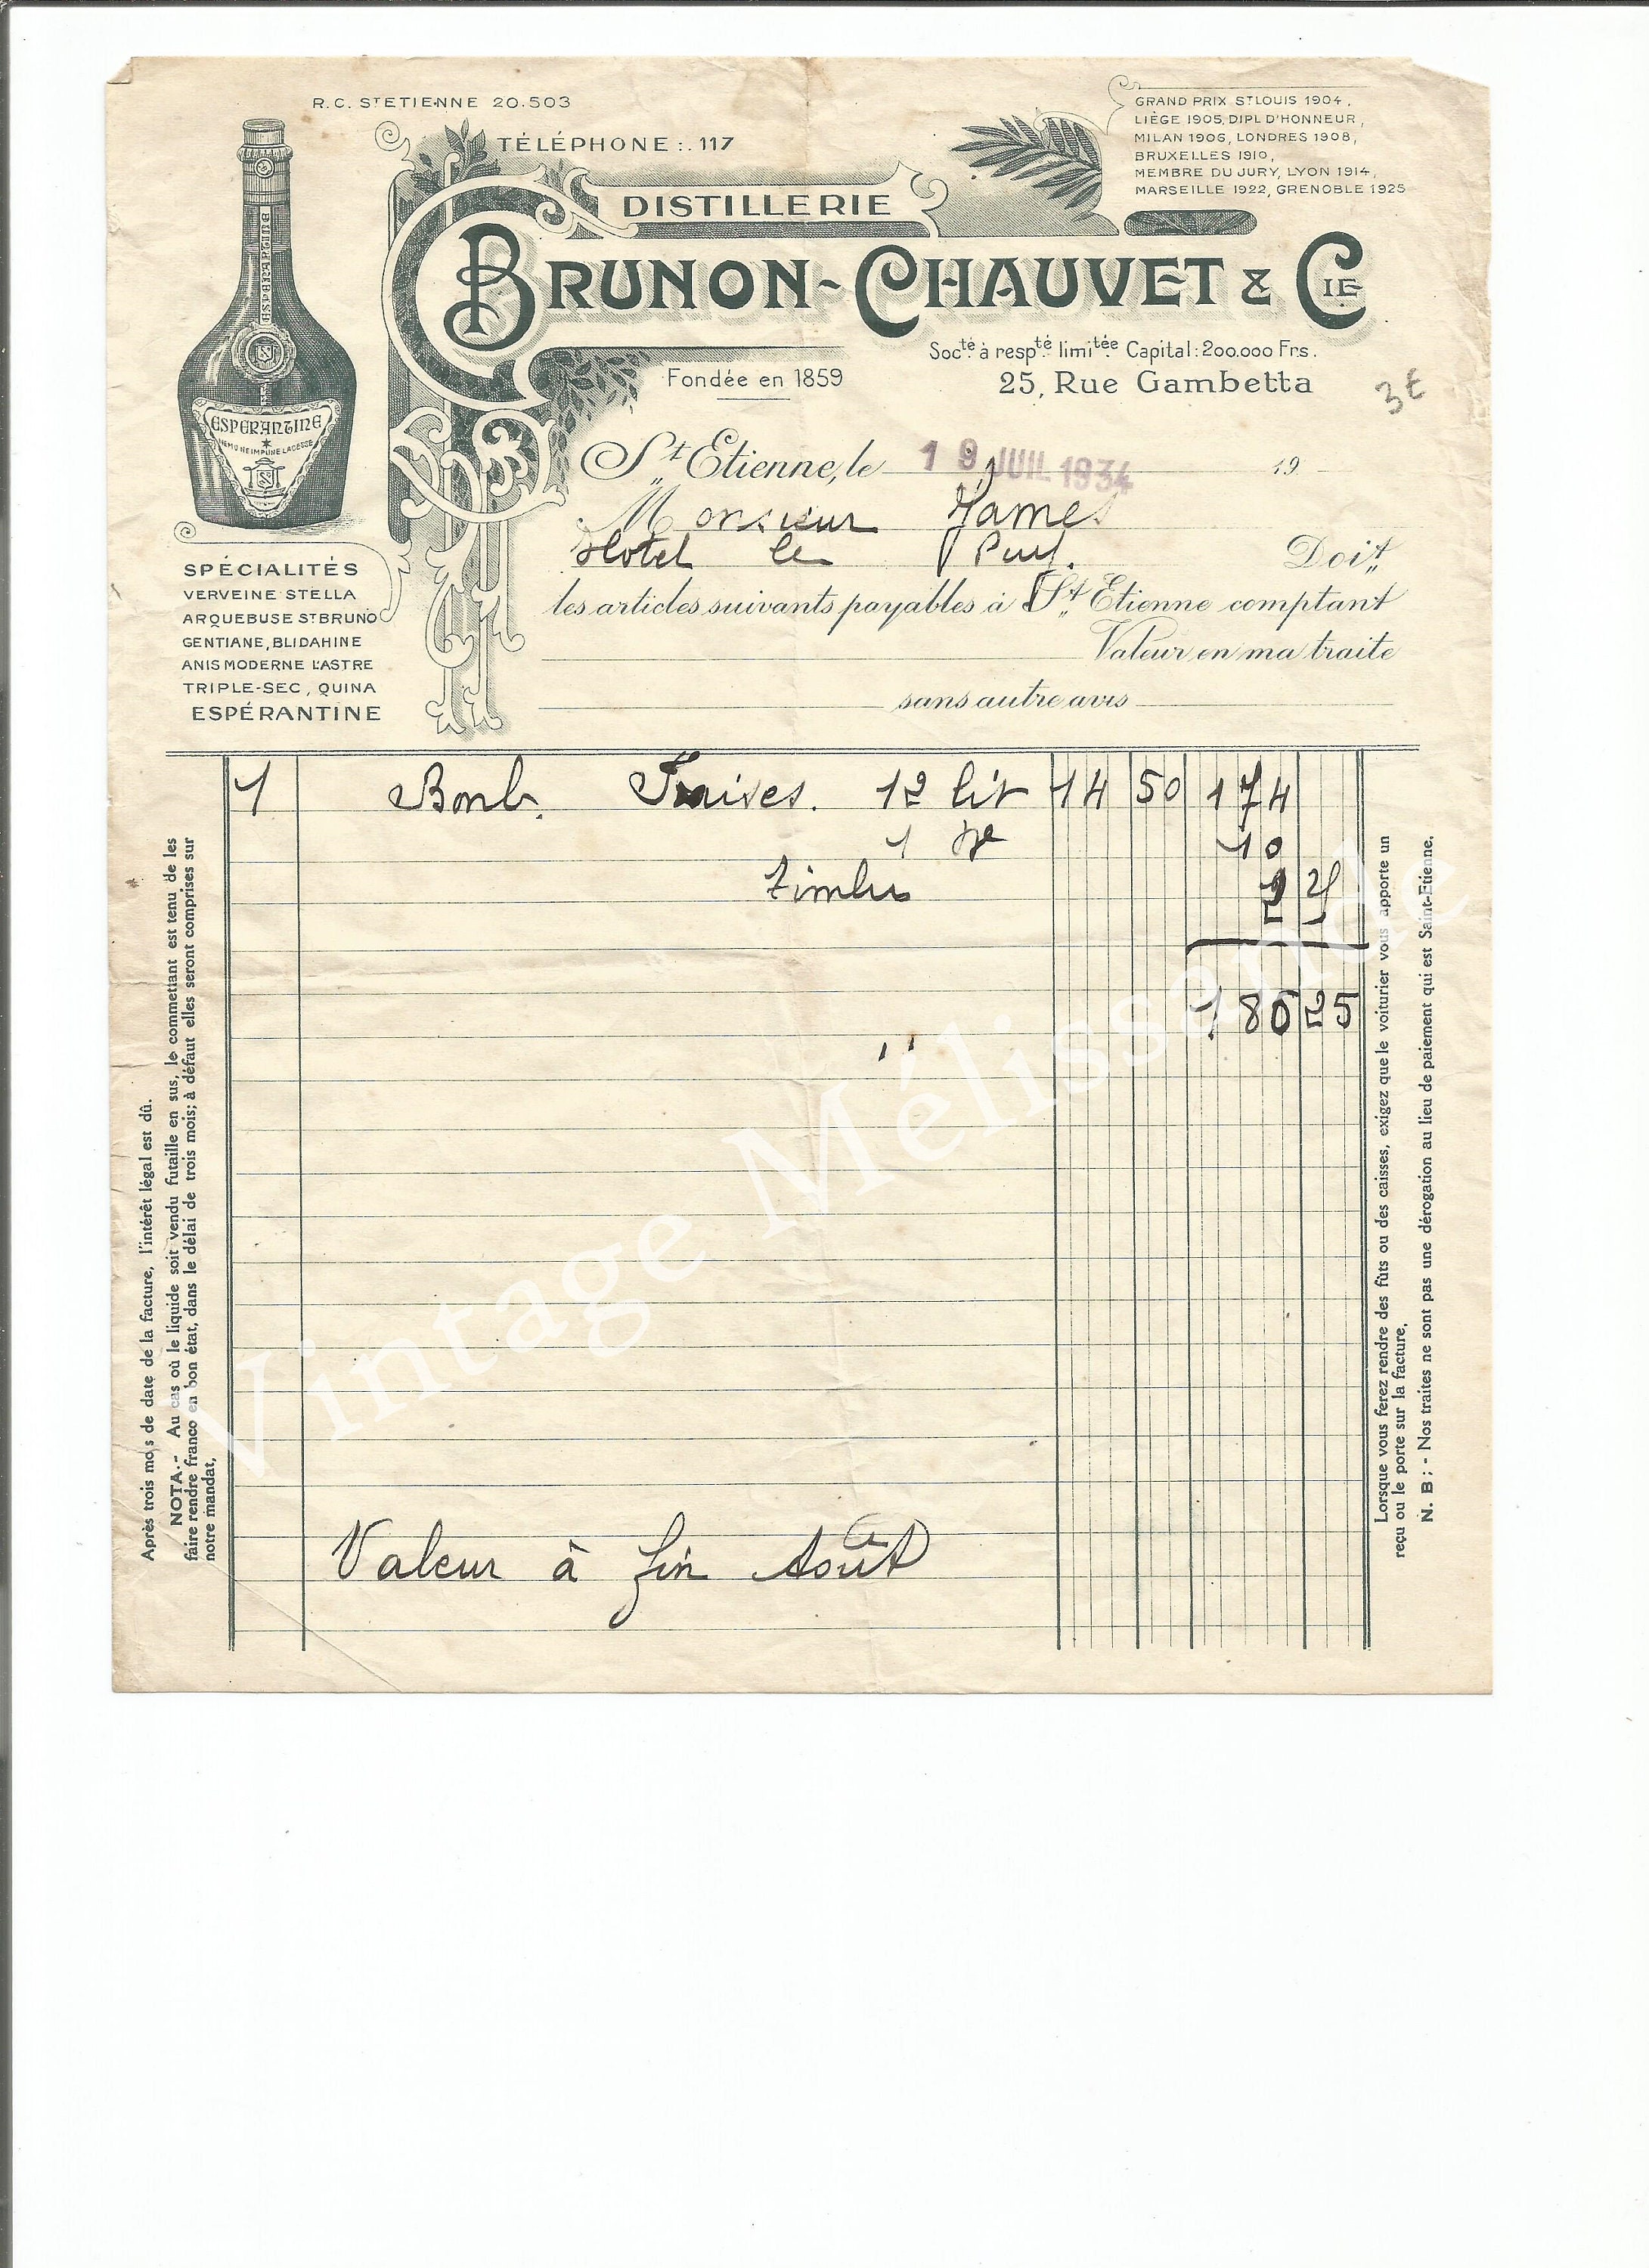 R.C. ST ETIENNE 20.503
TÉLÉPHONE : . 117
GRAND PRIX ST LOUIS 1904,
LIÈGE 1905, DIPL D'HONNEUR,
MILAN 1906, LONDRES 1908,
BRUXELLES 1910,
MEMBRE DU JURY, LYON 1914,
MARSEILLE 1922, GRENOBLE 1925
DISTILLERIE
BRUNON-CHAUVET & CIE
Socté à respté limitée Capital: 200.000 Frs.
Fondée en 1859
25, Rue Gambetta
3€
ESPERANTINE
ESPERANTINE
NEMO ME IMPUNE LACESSE
St Etienne, le 19 JUIL 1934 19
Monsieur
Hotel le Puy. Doit
les articles suivants payables à St Etienne comptant
Valeur en ma traite
sans autre avis
SPÉCIALITÉS
VERVEINE STELLA
ARQUEBUSE ST BRUNO
GENTIANE, BLIDAHINE
ANIS MODERNE L'ASTRE
TRIPLE-SEC, QUINA
ESPÉRANTINE
1 Bonb. Fraises. 12 lit 14 50 174
1 10
timbre 2 25
186 25
Valeur à fin Août
Après trois mois de date de la facture, l'intérêt légal est dû.
NOTA. - Au cas où le liquide soit vendu futaille en sus, le commettant est tenu de les
faire rendre franco en bon état, dans le délai de trois mois; à défaut elles seront comprises sur
notre mandat,
Lorsque vous ferez rendre des fûts ou des caisses, exigez que le voiturier vous apporte un
reçu ou le porte sur la facture,
N. B : - Nos traites ne sont pas une dérogation au lieu de paiement qui est Saint-Etienne.
Vintage Mélissande